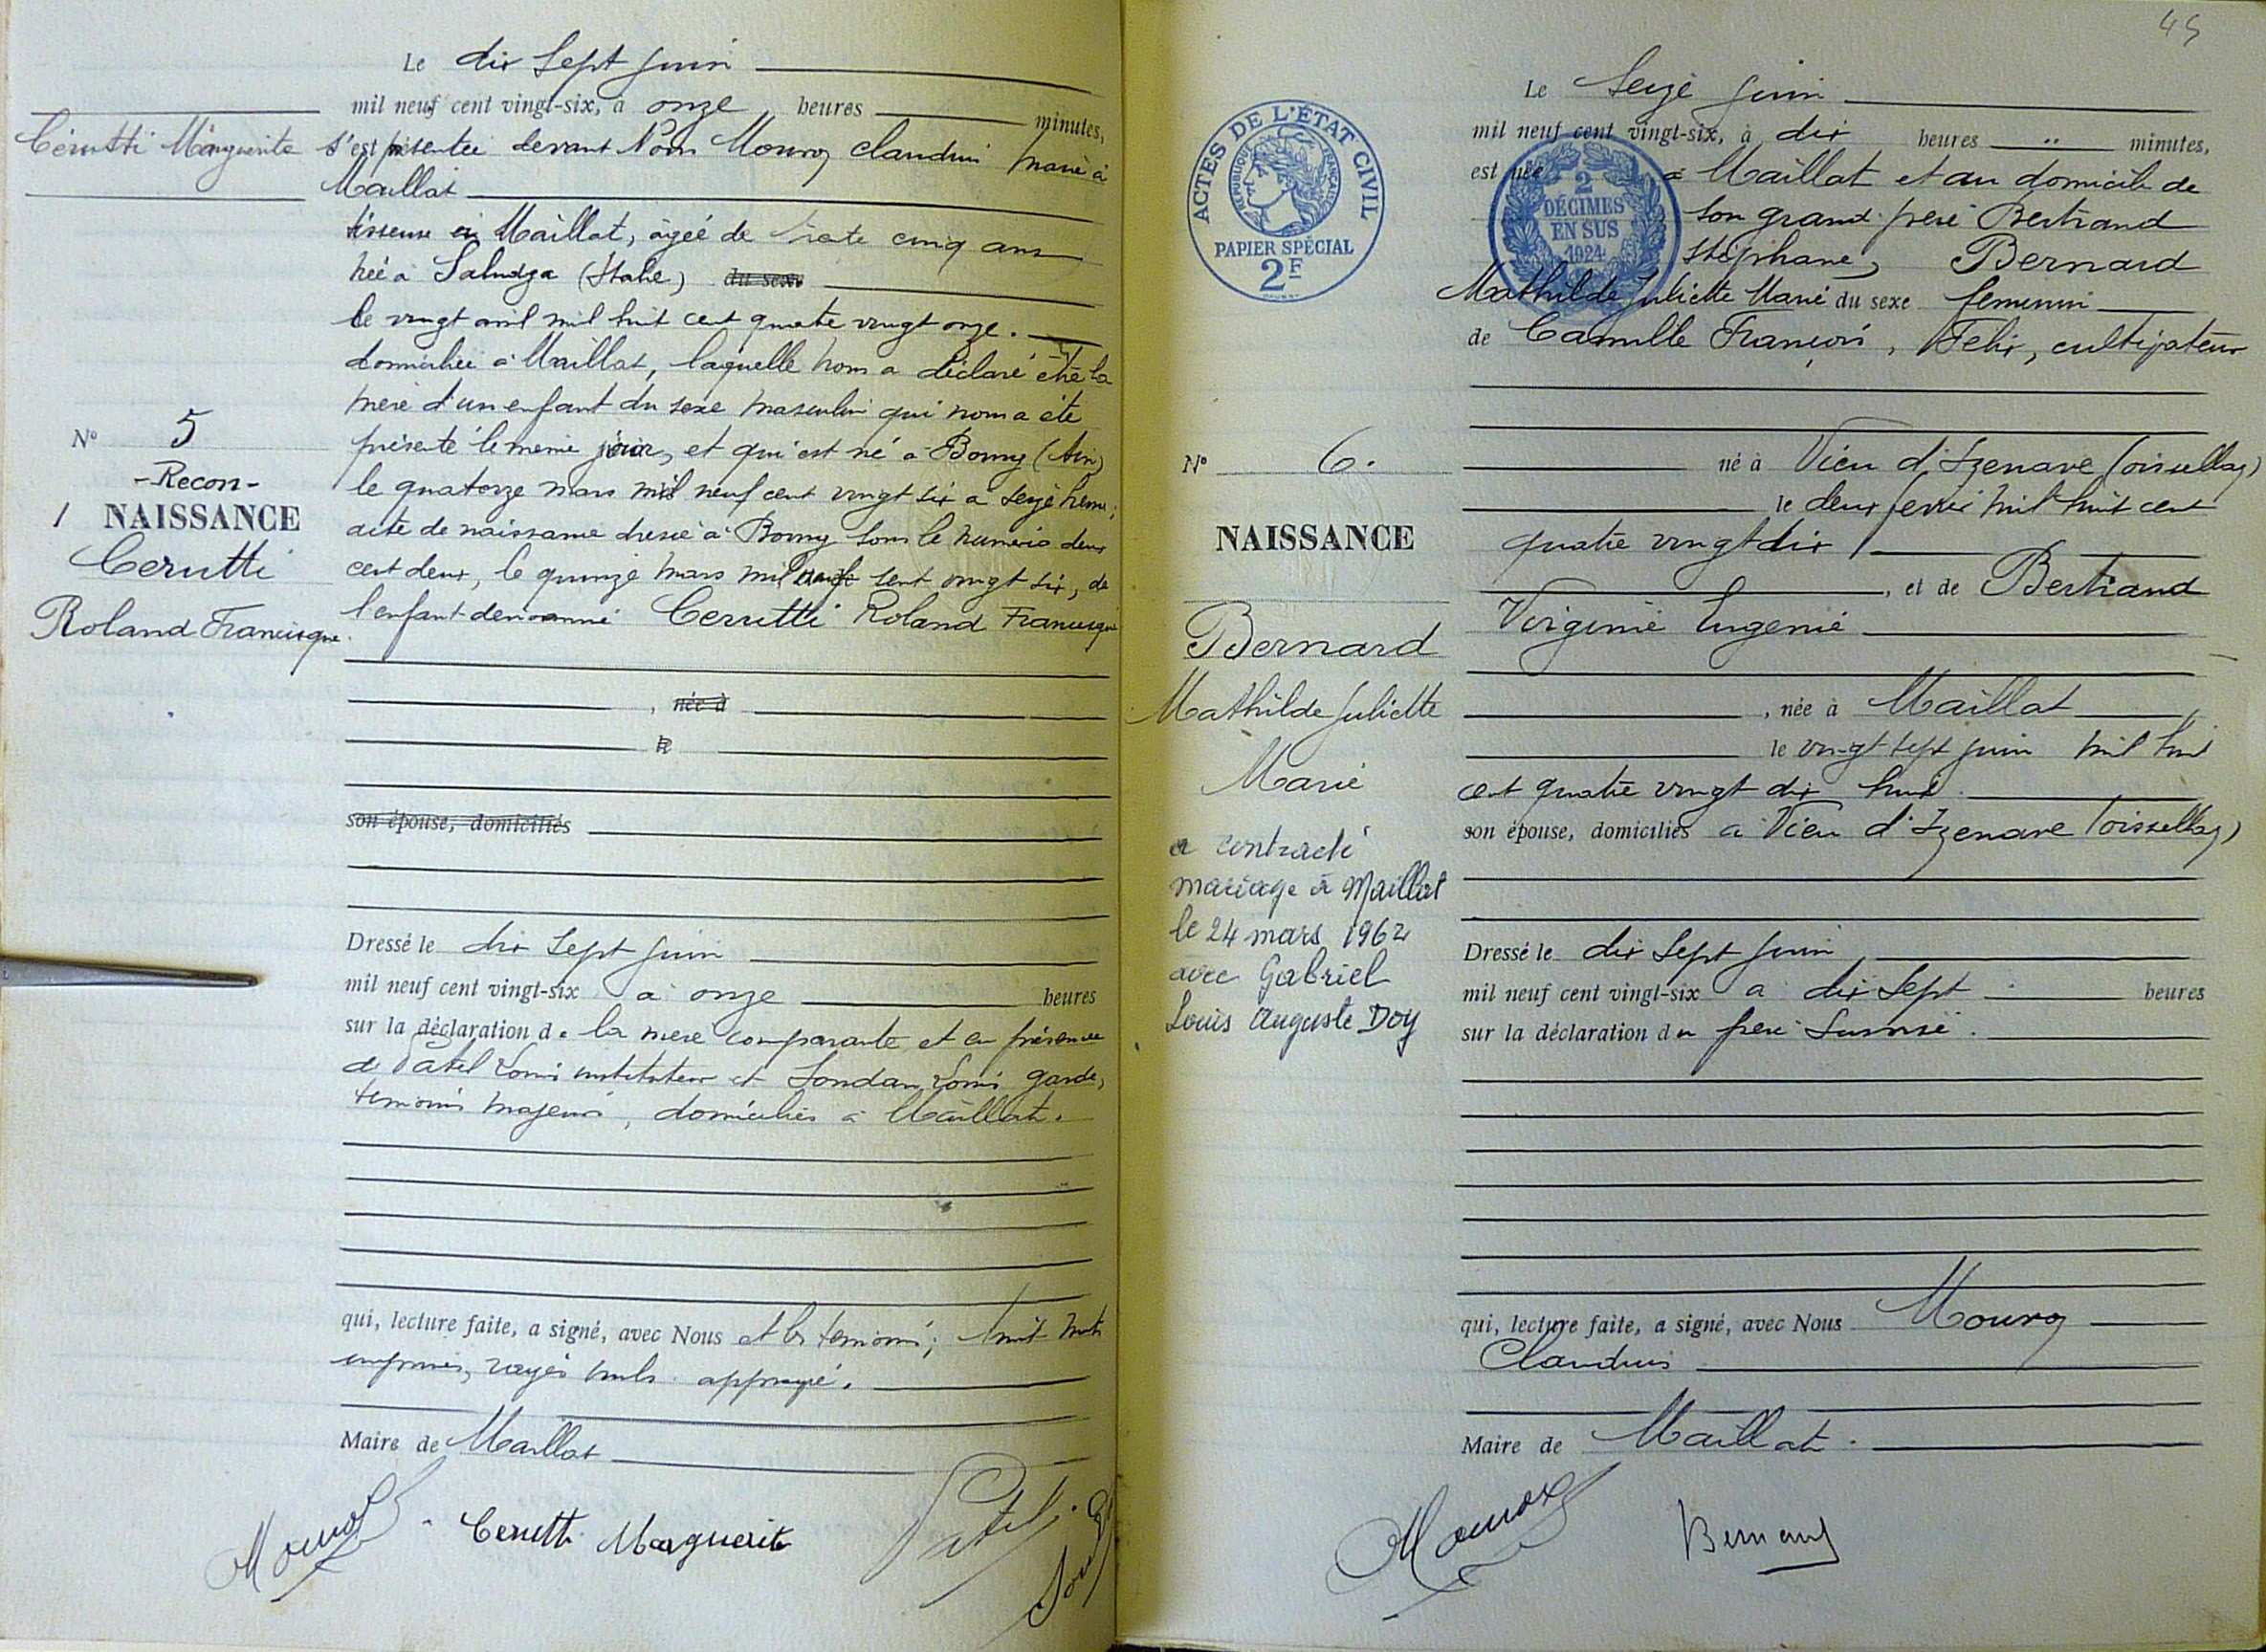 Le dix Sept Juin
mil neuf cent vingt-six, à onze heures minutes,
Cérutti Marguerite
s'est présentée devant Nous Mouroz Claudius maire à
Maillat
tisseuse à Maillat, âgée de trente cinq ans
née à Saludza (Italie) du sexe
le vingt avril mil huit cent quatre vingt onze.
domiciliée à Maillat, laquelle nous a déclaré être la
mère d'un enfant du sexe masculin qui nous a été
présenté le même jour, et qui est né à Bourg (Ain)
le quatorze mars mil neuf cent vingt six à seize heures;
acte de naissance dressé à Bourg sous le numéro deux
cent deux, le quinze mars mil neuf cent vingt six, de
l'enfant dénommé Cerutti Roland Francisque
N° 5
-Recon-
1 NAISSANCE
Cerutti
Roland Francisque.
, née à
le
son épouse, domiciliés
Dressé le dix Sept Juin
mil neuf cent vingt-six à onze heures
sur la déclaration de la mère comparante et en présence
de Patel Louis instituteur et Soudan Louis garde,
témoins majeurs, domiciliés à Maillat.
qui, lecture faite, a signé, avec Nous et les témoins; huit mots
imprimés, rayés nuls approuvé.
Maire de Maillat
Mouroz
Cerutti Marguerite
Patel
45
ACTES DE L'ÉTAT CIVIL
RÉPUBLIQUE FRANÇAISE
PAPIER SPÉCIAL
2F
2
DÉCIMES
EN SUS
1924
Le Seize Juin
mil neuf cent vingt-six, à dix heures .. minutes,
est née à Maillat et au domicile de
son grand-père Bertrand
Stéphane, Bernard
Mathilde Juliette Marie du sexe féminin
de Camille François, Félix, cultivateur
né à Vieu d'Izenave (Oisselaz)
le deux février mil huit cent
quatre vingt dix
, et de Bertrand
Virginie Eugénie
, née à Maillat
le vingt sept juin mil huit
cent quatre vingt dix huit.
son épouse, domiciliés à Vieu d'Izenave (Oisselaz)
N° 6.
NAISSANCE
Bernard
Mathilde Juliette
Marie
a contracté
mariage à Maillat
le 24 mars 1962
avec Gabriel
Louis Auguste Doy
Dressé le dix Sept Juin
mil neuf cent vingt-six à dix Sept heures
sur la déclaration du père susnommé.
qui, lecture faite, a signé, avec Nous Mouroz
Claudius
Maire de Maillat.
Mouroz
Bernard